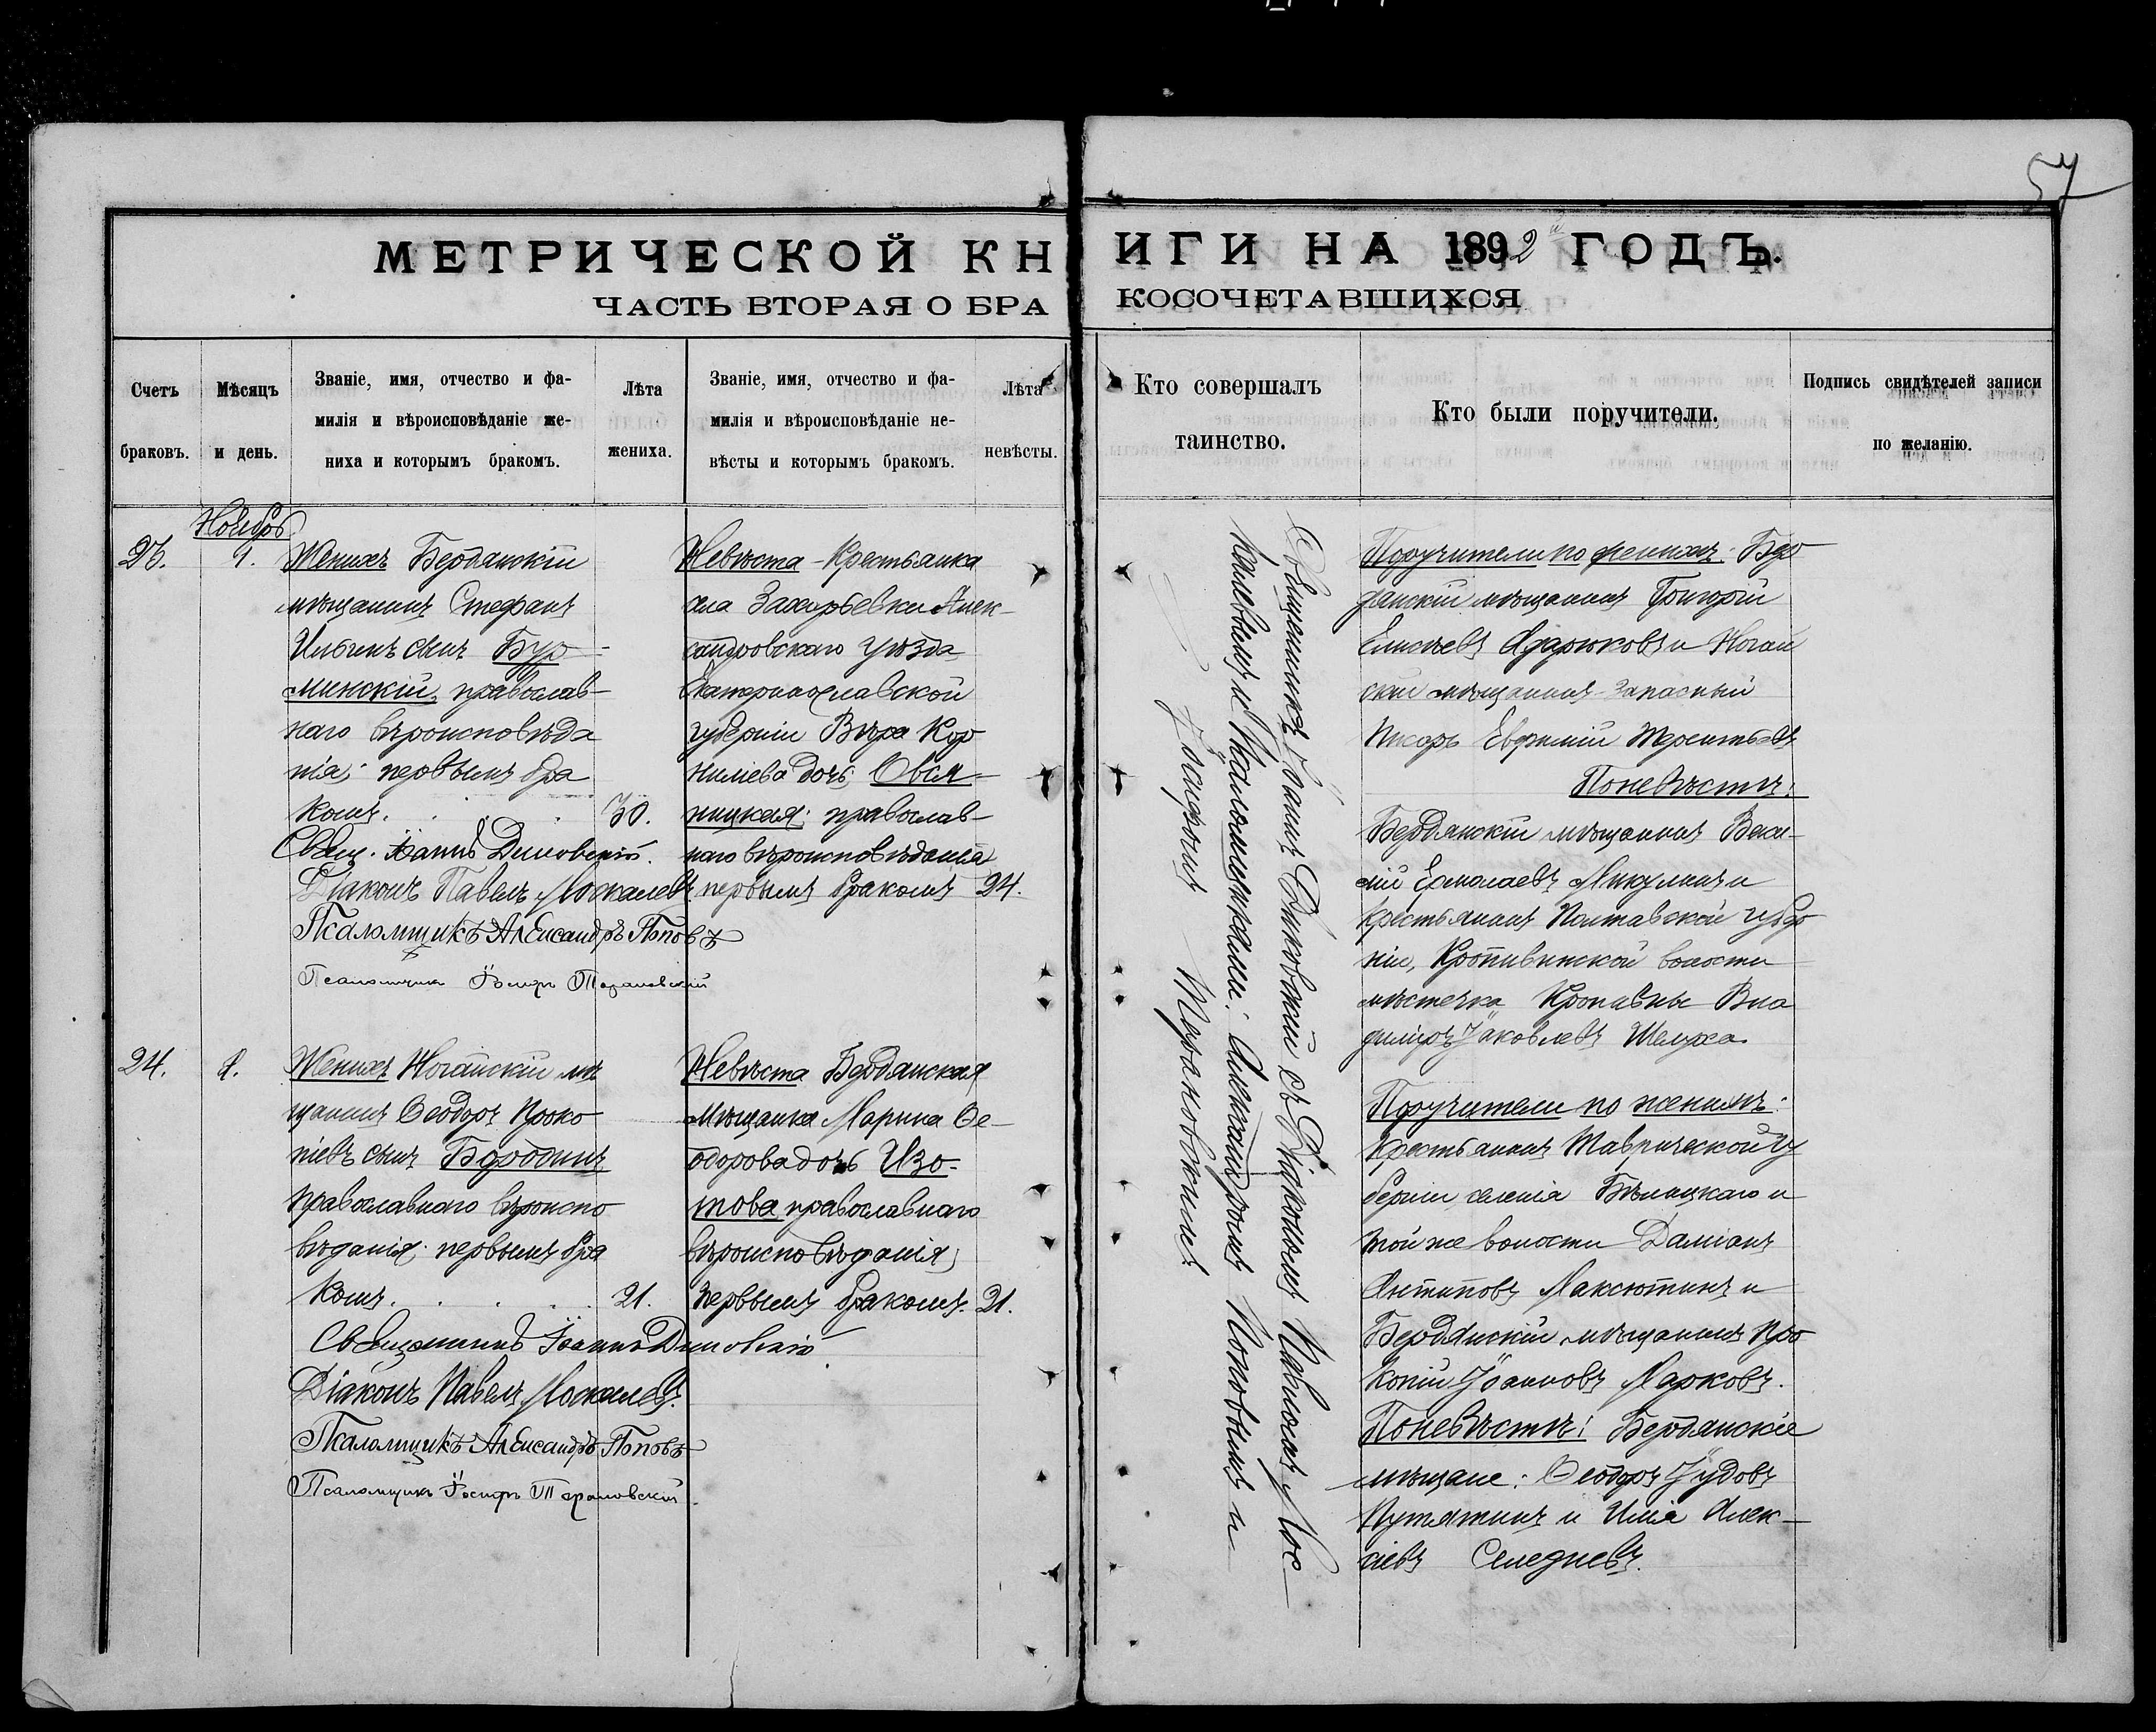 57
МЕТРИЧЕСКОЙ КНИГИ НА 1892й ГОДЪ.
ЧАСТЬ ВТОРАЯ О БРАКОСОЧЕТАВШИХСЯ
Счетъ браковъ.
Мѣсяцъ и день.
Званіе, имя, отчество и фа-
милія и вѣроисповѣданіе же-
ниха и которымъ бракомъ.
Лѣта жениха.
Званіе, имя, отчество и фа-
милія и вѣроисповѣданіе не-
вѣсты и которымъ бракомъ.
Лѣта невѣсты.
Кто совершалъ
таинство.
Кто были поручители.
Подпись свидѣтелей записи
по желанію.
Ноябрь
23.
Женихъ Бердянскій
мѣщанинъ Стефанъ
Ильинъ сынъ Бур-
минскій, православ-
наго вѣроисповѣда
нія; первымъ бра
комъ. 30.
Свящ. Іоаннъ Диковскій.
Діаконъ Павелъ Москалевъ.
Псаломщикъ Александръ Поповъ
Псаломщикъ Іосифъ Тарановскій
Невѣста - Крестьянка
села Захарьевки Алек-
сандровскаго уѣзда
Екатеринославской
губерніи Вѣра Кор
ниліева дочь Овся-
ницкая; православ-
наго вѣроисповѣданія
первымъ бракомъ 24.
Священникъ Іоаннъ Диковскій съ Діакономъ Павломъ Мос-
калевымъ и Псаломщиками: Александромъ Поповымъ и
Іосифомъ Тарановскимъ
Поручители по женихѣ: Бер
дянскій мѣщанинъ Григорій
Елисѣевъ и Ногай
скій мѣщанинъ запасный
писарь Евфимій Терентьевъ
По невѣстѣ:
Бердянскій мѣщанинъ Васи-
лій Ермолаевъ Микулинъ и
крестьянинъ Полтавской губер
ніи, Кропивинской волости
мѣстечка Кропивны Вла
диміръ Іаковлевъ Шелуха.
24. 8.
Женихъ Ногайскій мѣ
щанинъ Ѳеодоръ Проко
піевъ сынъ Бородинъ
православнаго вѣроиспо
вѣданія; первымъ бра
комъ. 21.
Священникъ Іоаннъ Диковскій
Діаконъ Павелъ Москалевъ.
Псаломщикъ Александръ Поповъ
Псаломщикъ Іосифъ Тарановскій.
Невѣста Бердянская
мѣщанка Марина Ѳе-
одорова дочь Изо-
това православнаго
вѣроисповѣданія,
первымъ бракомъ. 21.
Поручители по женихѣ:
крестьянинъ Таврической гу
берніи селенія Бѣлицкаго и
той же волости Даміанъ
Антиповъ Максютинъ и
Бердянскій мѣщанинъ Про
копій Іоанновъ Марковъ.
По невѣстѣ: Бердянскіе
мѣщане: Ѳеодоръ Іудовъ
Путятинъ и Илія Алек-
сіевъ Селезневъ.